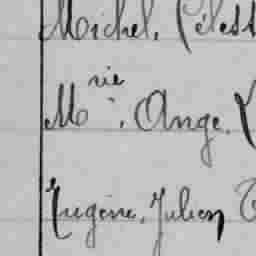 Michel, Célest
Mrie, Ange,
Eugène, Julien